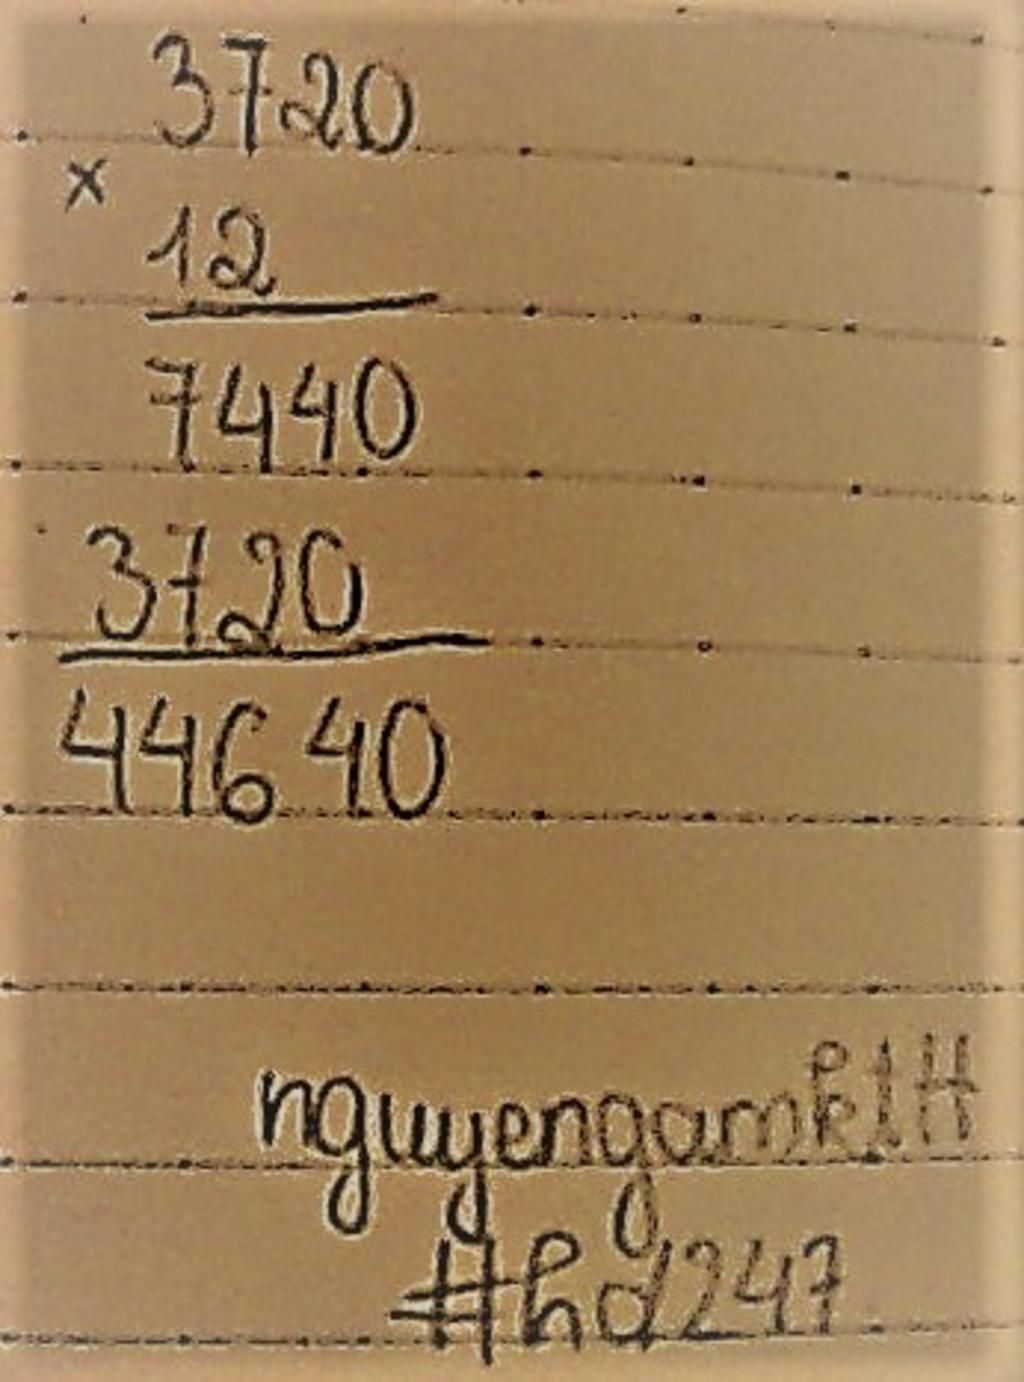 3720
×
12
7440
3720
44640
nguyengamk1H
#hd247